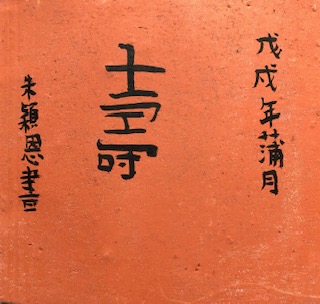 戊戌年蒲月
壽
朱穎恩書